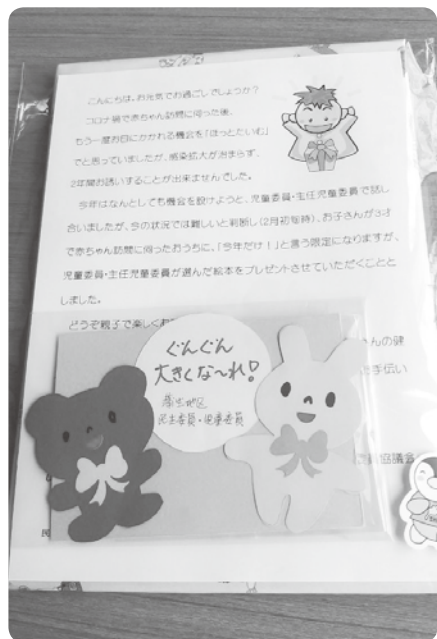 こんにちは。お元気でお過ごしでしょうか?
コロナ禍で赤ちゃん訪問に伺った後、
もう一度お目にかかれる機会を「ほっとたいむ」
でと思っていましたが、感染拡大が治まらず、
2年間お誘いすることが出来ませんでした。
今年はなんとしても機会を設けようと、児童委員・主任児童委員で話し
合いましたが、今の状況では難しいと判断し(2月初旬時)、お子さんが3才
で赤ちゃん訪問に伺ったおうちに、「今年だけ!」と言う限定になりますが、
児童委員・主任児童委員が選んだ絵本をプレゼントさせていただくことと
しました。
どうぞ親子で楽しくお
んの健
手伝い
協議会
民
ぐんぐん
大きくな〜れ!
地区
民生委員・児童委員